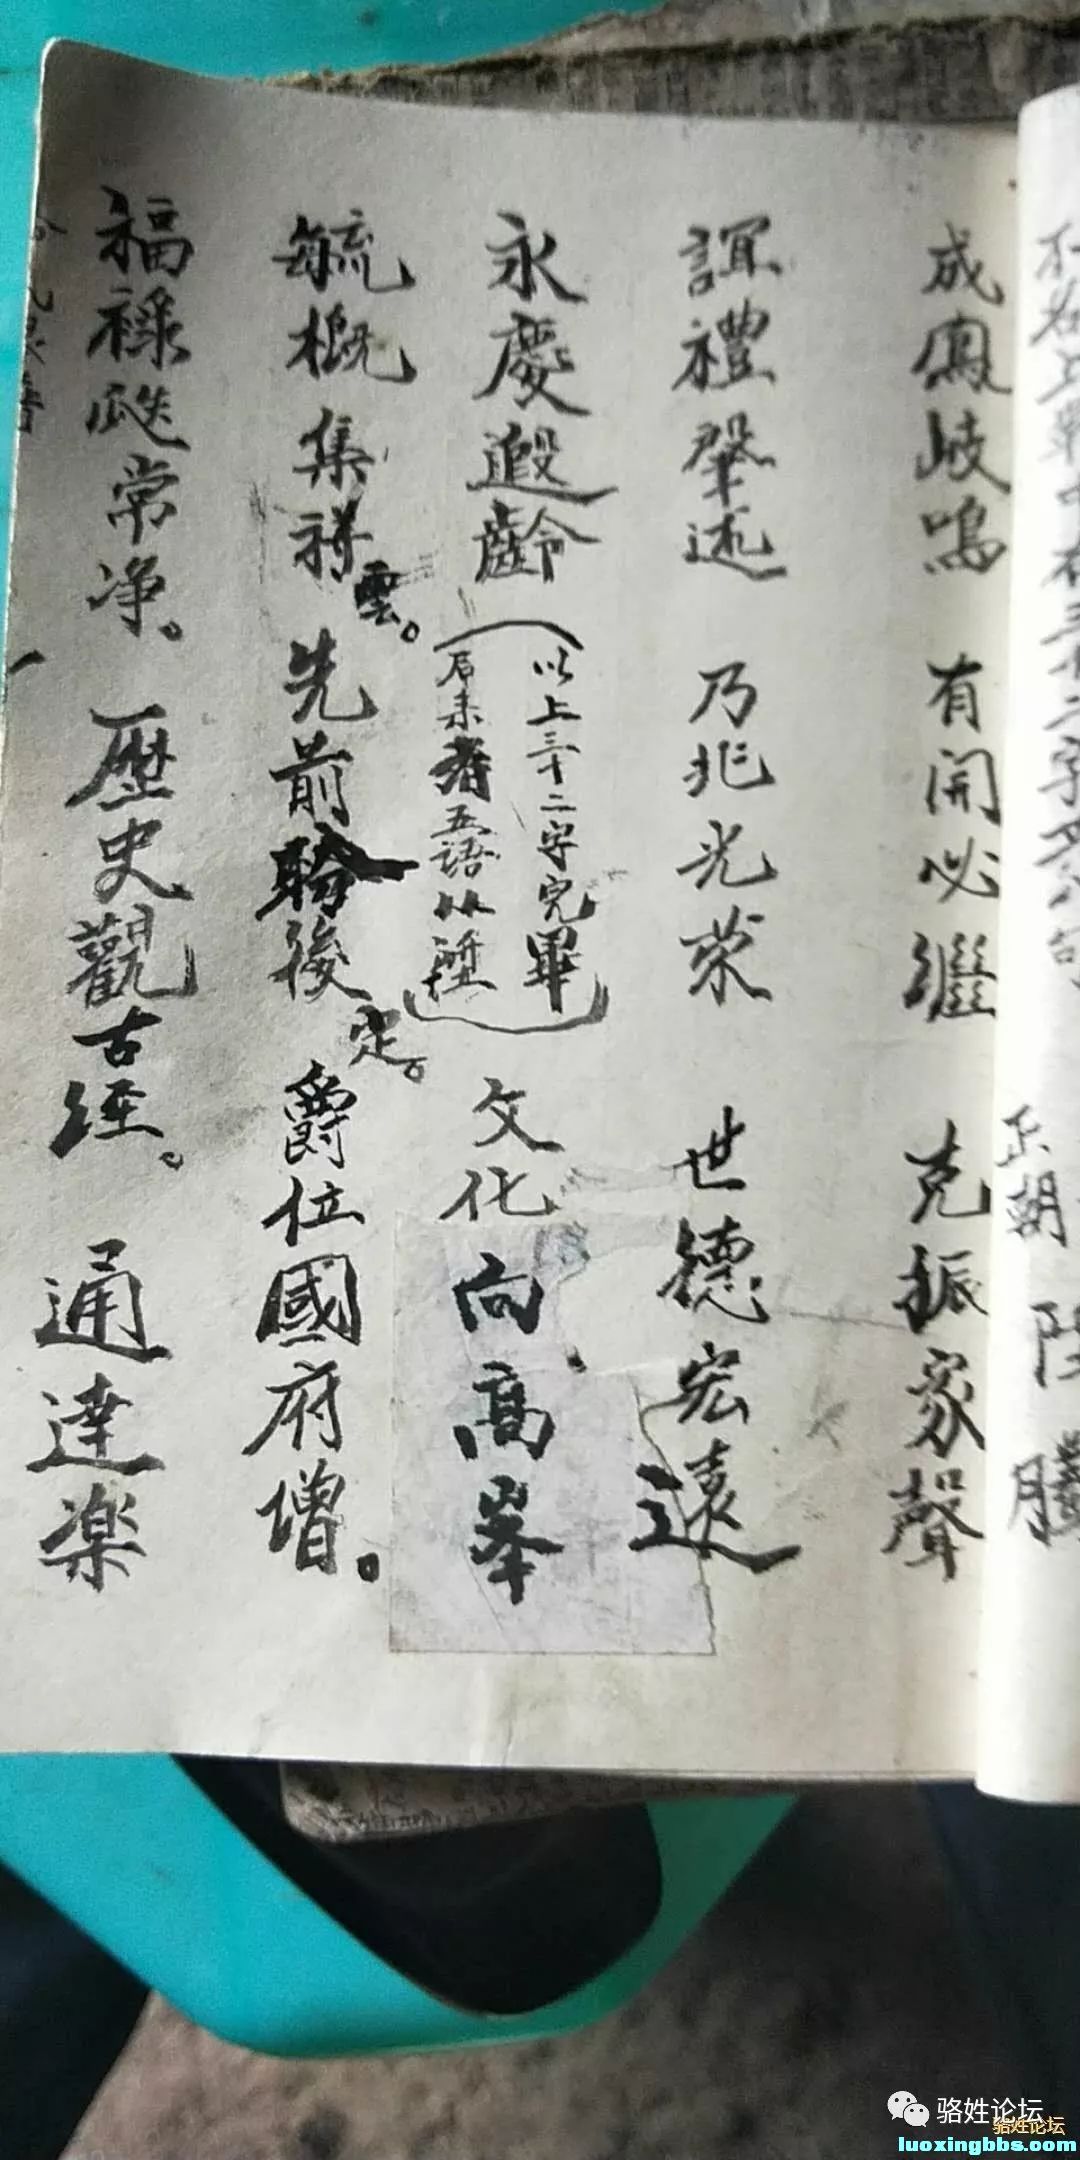 正朝
成鳳岐鳴 有開必繼 克振家聲
誼禮肇述 乃兆光荣 世德宏遠
永慶遐齡
(以上三十二字完畢
后来者五語以經)
文化向高峯
毓概集祥雲。先前聆後定。爵位國府增。
福禄甦常净。歷史觀古经。通達楽
骆姓论坛
骆姓论坛
luoxingbbs.com